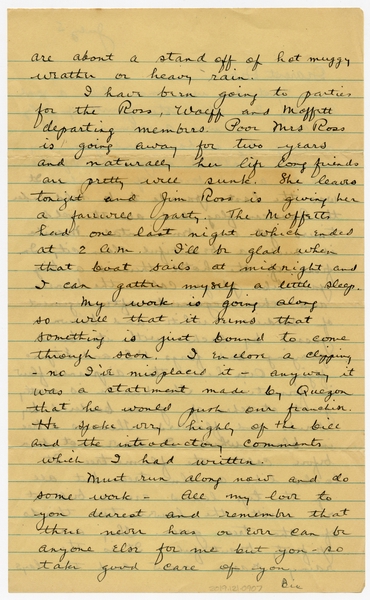 are about a stand off of hot muggy
weather or heavy rain.
I have been going to parties
for the Ross, Wolff and Moffett
departing members. Poor Mrs Ross
is going away for two years
and naturally her life long friends
are pretty well sunk. She leaves
tonight and Jim Ross is giving her
a farewell party. The Moffetts
had one last night which ended
at 2 A.M. I'll be glad when
that boat sails at midnight and
I can gather myself a little sleep.
My work is going along
so well that it seems that
something is just bound to come
through soon. I enclose a clipping
- no I've misplaced it - anyway it
was a statement made by Quezon
that he would push our franchise.
He spoke very highly of the bill
and the introductory comments
which I had written.
Must run along now and do
some work - All my love to
you dearest and remember that
there never has or ever can be
anyone else for me but you - so
take good care of you.